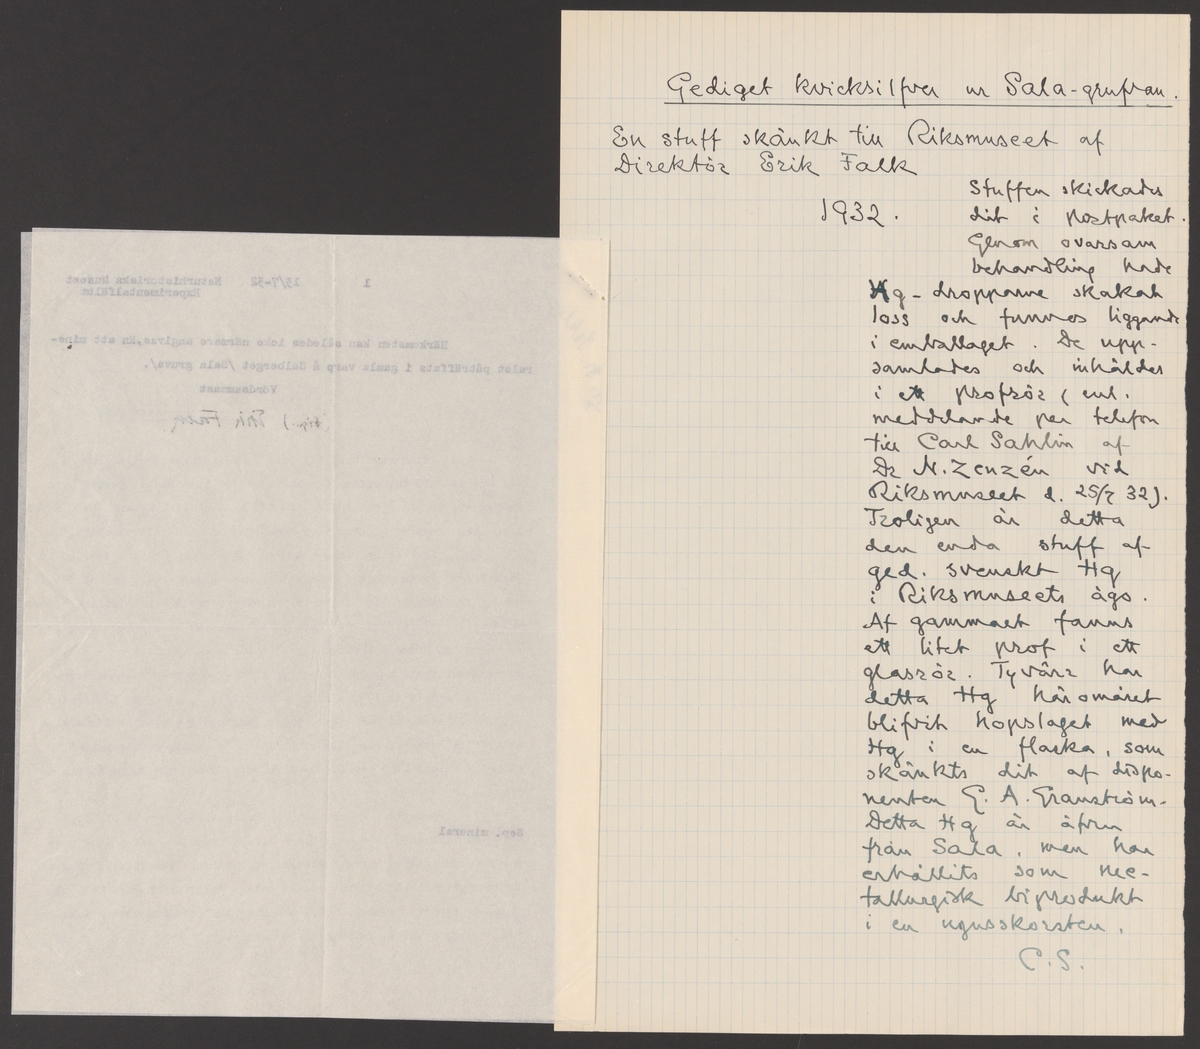 Gediget kvicksilfver ur Sala-grufvan.
En stuff skänkt till Riksmuseet af
Direktör Erik Falk
1932.
Stuffen skickades
dit i postpaket.
Genom ovarsam
behandling hade
Hg-dropparne skakats
loss och funnos liggande
i emballaget. De upp-
samlades och inhäldes
i ett profrör (enl.
meddelande per telefon
till Carl Sahlin af
Dr N. Zenzén vid
Riksmuseet d. 25/7 32).
Troligen är detta
den enda stuff af
ged. svenskt Hg
i Riksmuseets ägo.
Af gammalt fanns
ett litet prof i ett
glasrör. Tyvärr har
detta Hg häromåret
blifvit hopslaget med
Hg i en flaska, som
skänkts dit af dispo-
nenten G. A. Granström.
Detta Hg är äfven
från Sala, men har
erhållits som me-
tallurgisk biprodukt
i en ugnsskorsten.
C.S.
1 13/7-32 Naturhistoriska Museet
Experimentalfältet
Härkomsten kan således icke närmare angivas, än att mine-
ralet påträffats i gamla varp å Salberget /Sala gruva/.
Vördsammast
Erik Falk
Sep. mineral